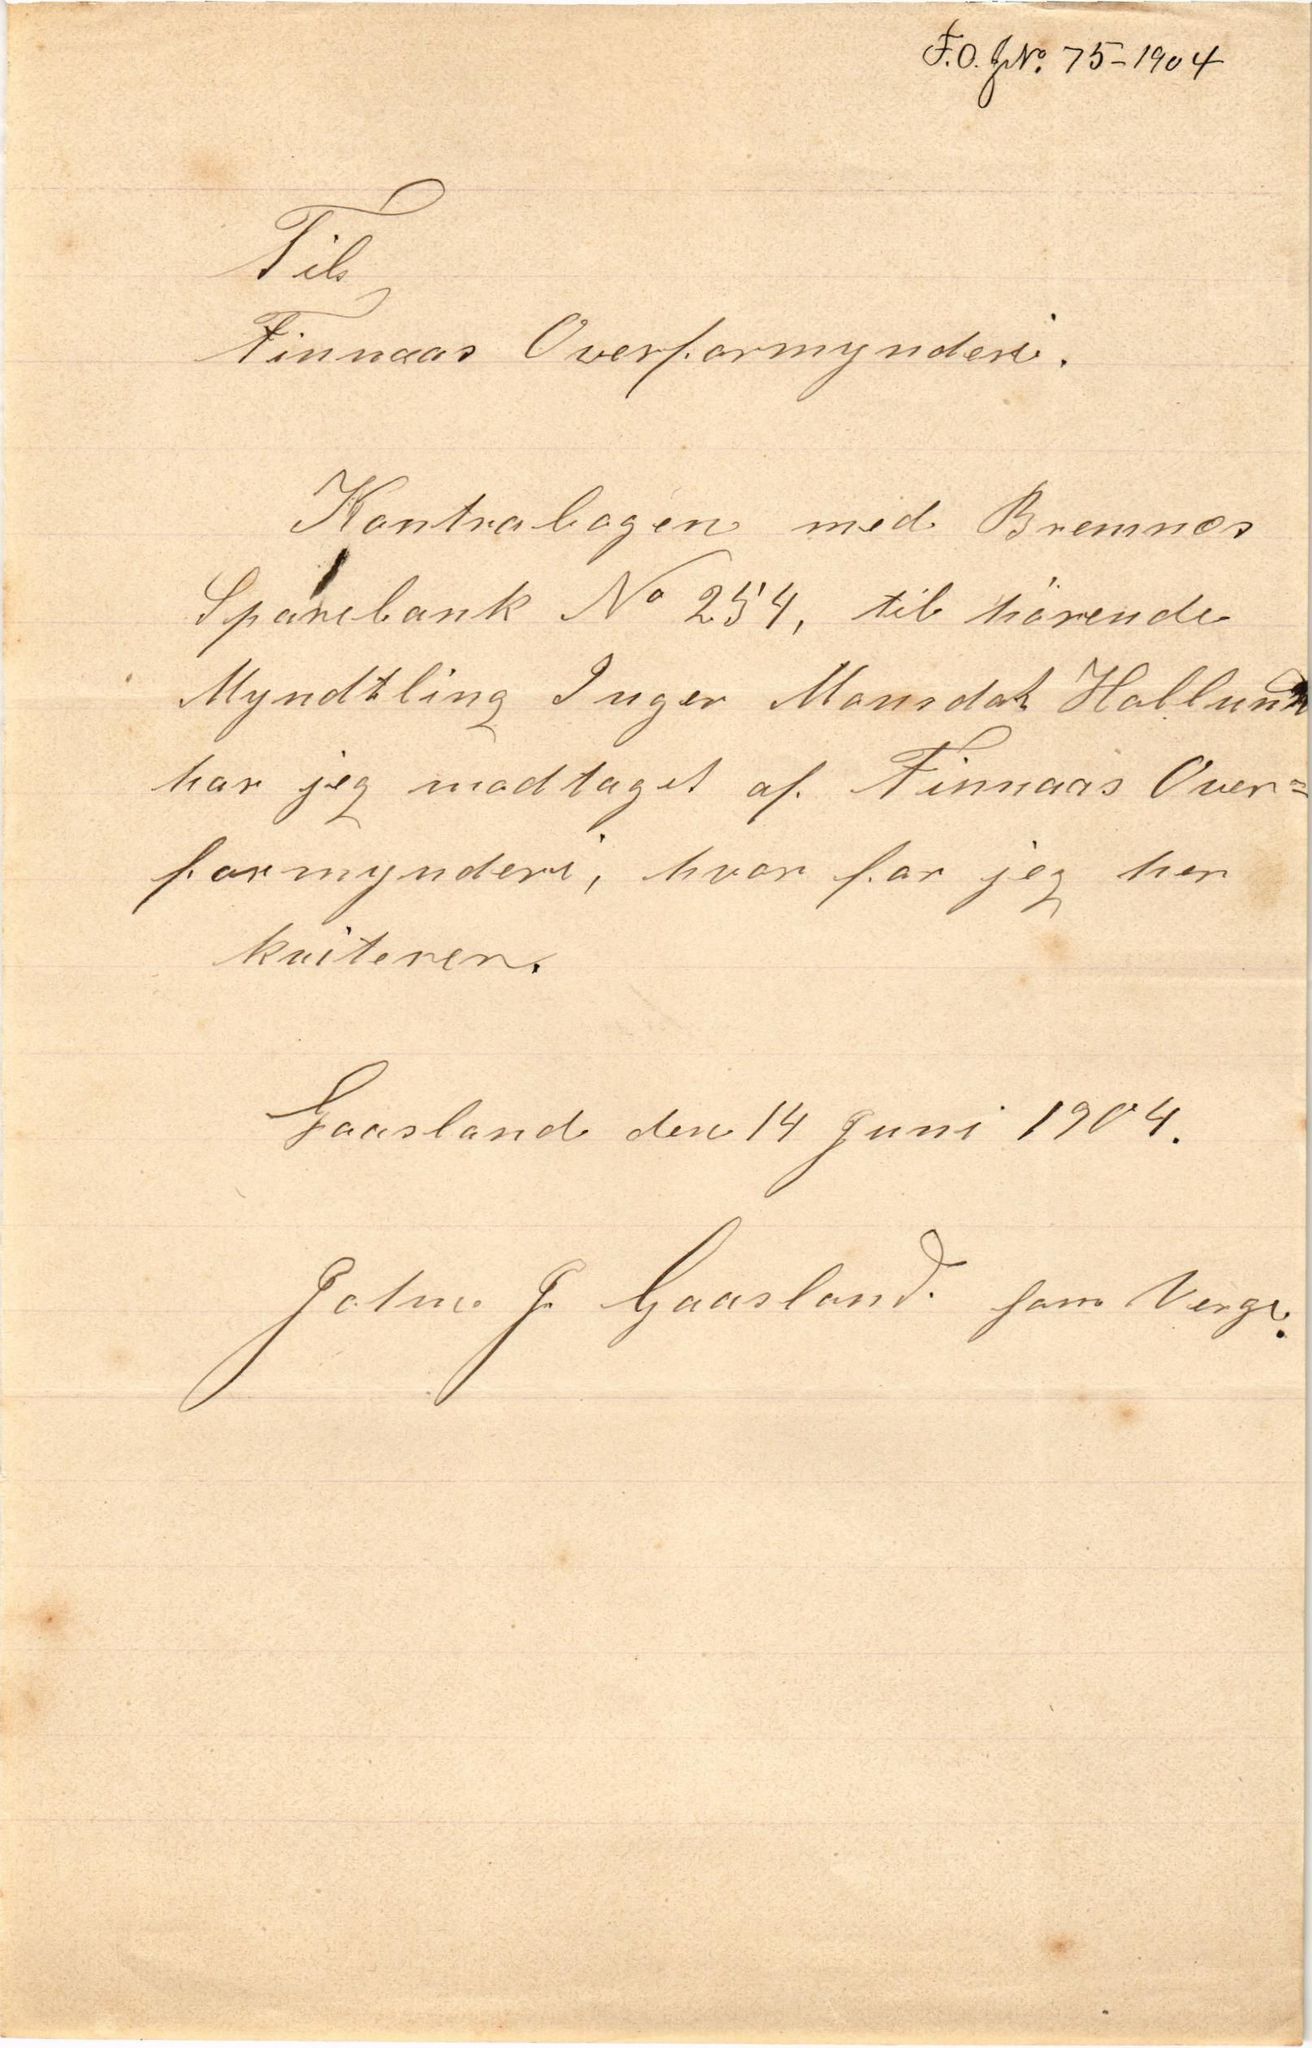 F.O. JNo. 75-1904
Til
Finnaas Overformynderi.
Kontrabogen med Bremnes
Sparebank No 254, til hörende
Myndtling Inger Monsdat Hollund
har jeg modtaget af Finnaas Over=
formynderi, hvor for jeg her
kviterer.
Gaasland den 14 Juni 1904.
J. Gaasland som Verge.